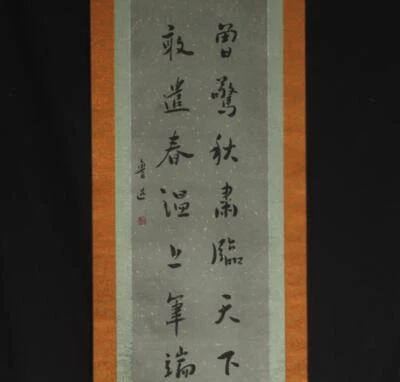 曾驚秋肅臨天下
敢遣春温上筆端
魯迅